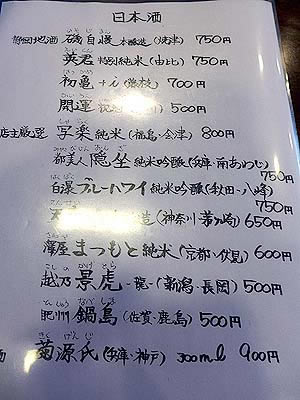 日本酒
静岡地酒 磯自慢 本醸造(焼津) 750円
英君 特別純米(由比) 750円
初亀 700円
開運 500円
店主厳選 写楽 純米(福島・会津) 800円
都美人 隠坐 純米吟醸(兵庫・南あわじ)
750円
白瀑 ブルーハワイ 純米吟醸(秋田・八峰)
750円
(神奈川・茅ヶ崎) 650円
澤屋まつもと 純米(京都・伏見) 600円
こしの かげとら
越乃 景虎 -龍-(新潟・長岡) 500円
なべしま
肥州 鍋島(佐賀・鹿島) 500円
きくげんじ
菊源氏(兵庫・神戸) 300ml 900円